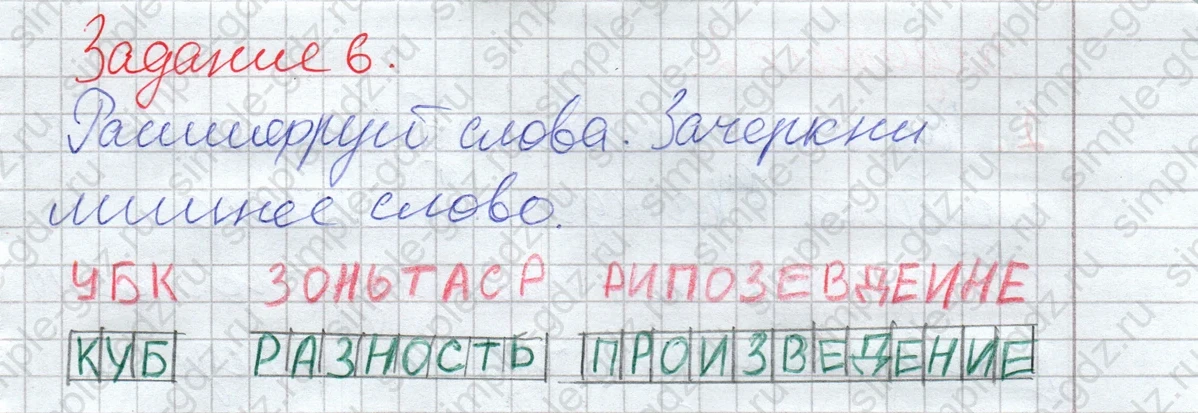 Задание 6.
Расшифруй слова. Зачеркни
лишнее слово.
УБК ЗОНЬТАСР РИПОЗЕВДЕИНЕ
КУБ РАЗНОСТЬ ПРОИЗВЕДЕНИЕ